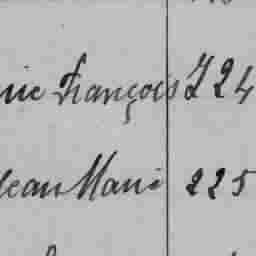 François 224
Jean Marie 225